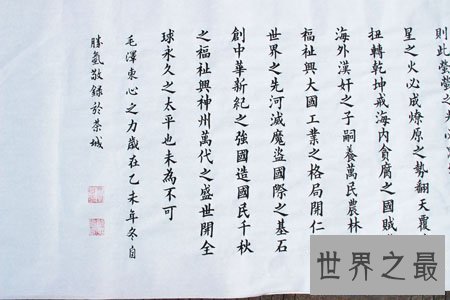 則此瑩瑩之光必
星之火必成燎原之勢翻天覆
扭轉乾坤戒海內貪腐之國賊
海外漢奸之子嗣養萬民農林
福祉興大國工業之格局開仁
世界之先河滅魔盜國際之基石
創中華新紀之強國造國民千秋
之福祉興神州萬代之盛世開全
球永久之太平也未為不可
毛澤東心之力歲在乙未年冬自
勝氣敬錄於茶城
世界之最